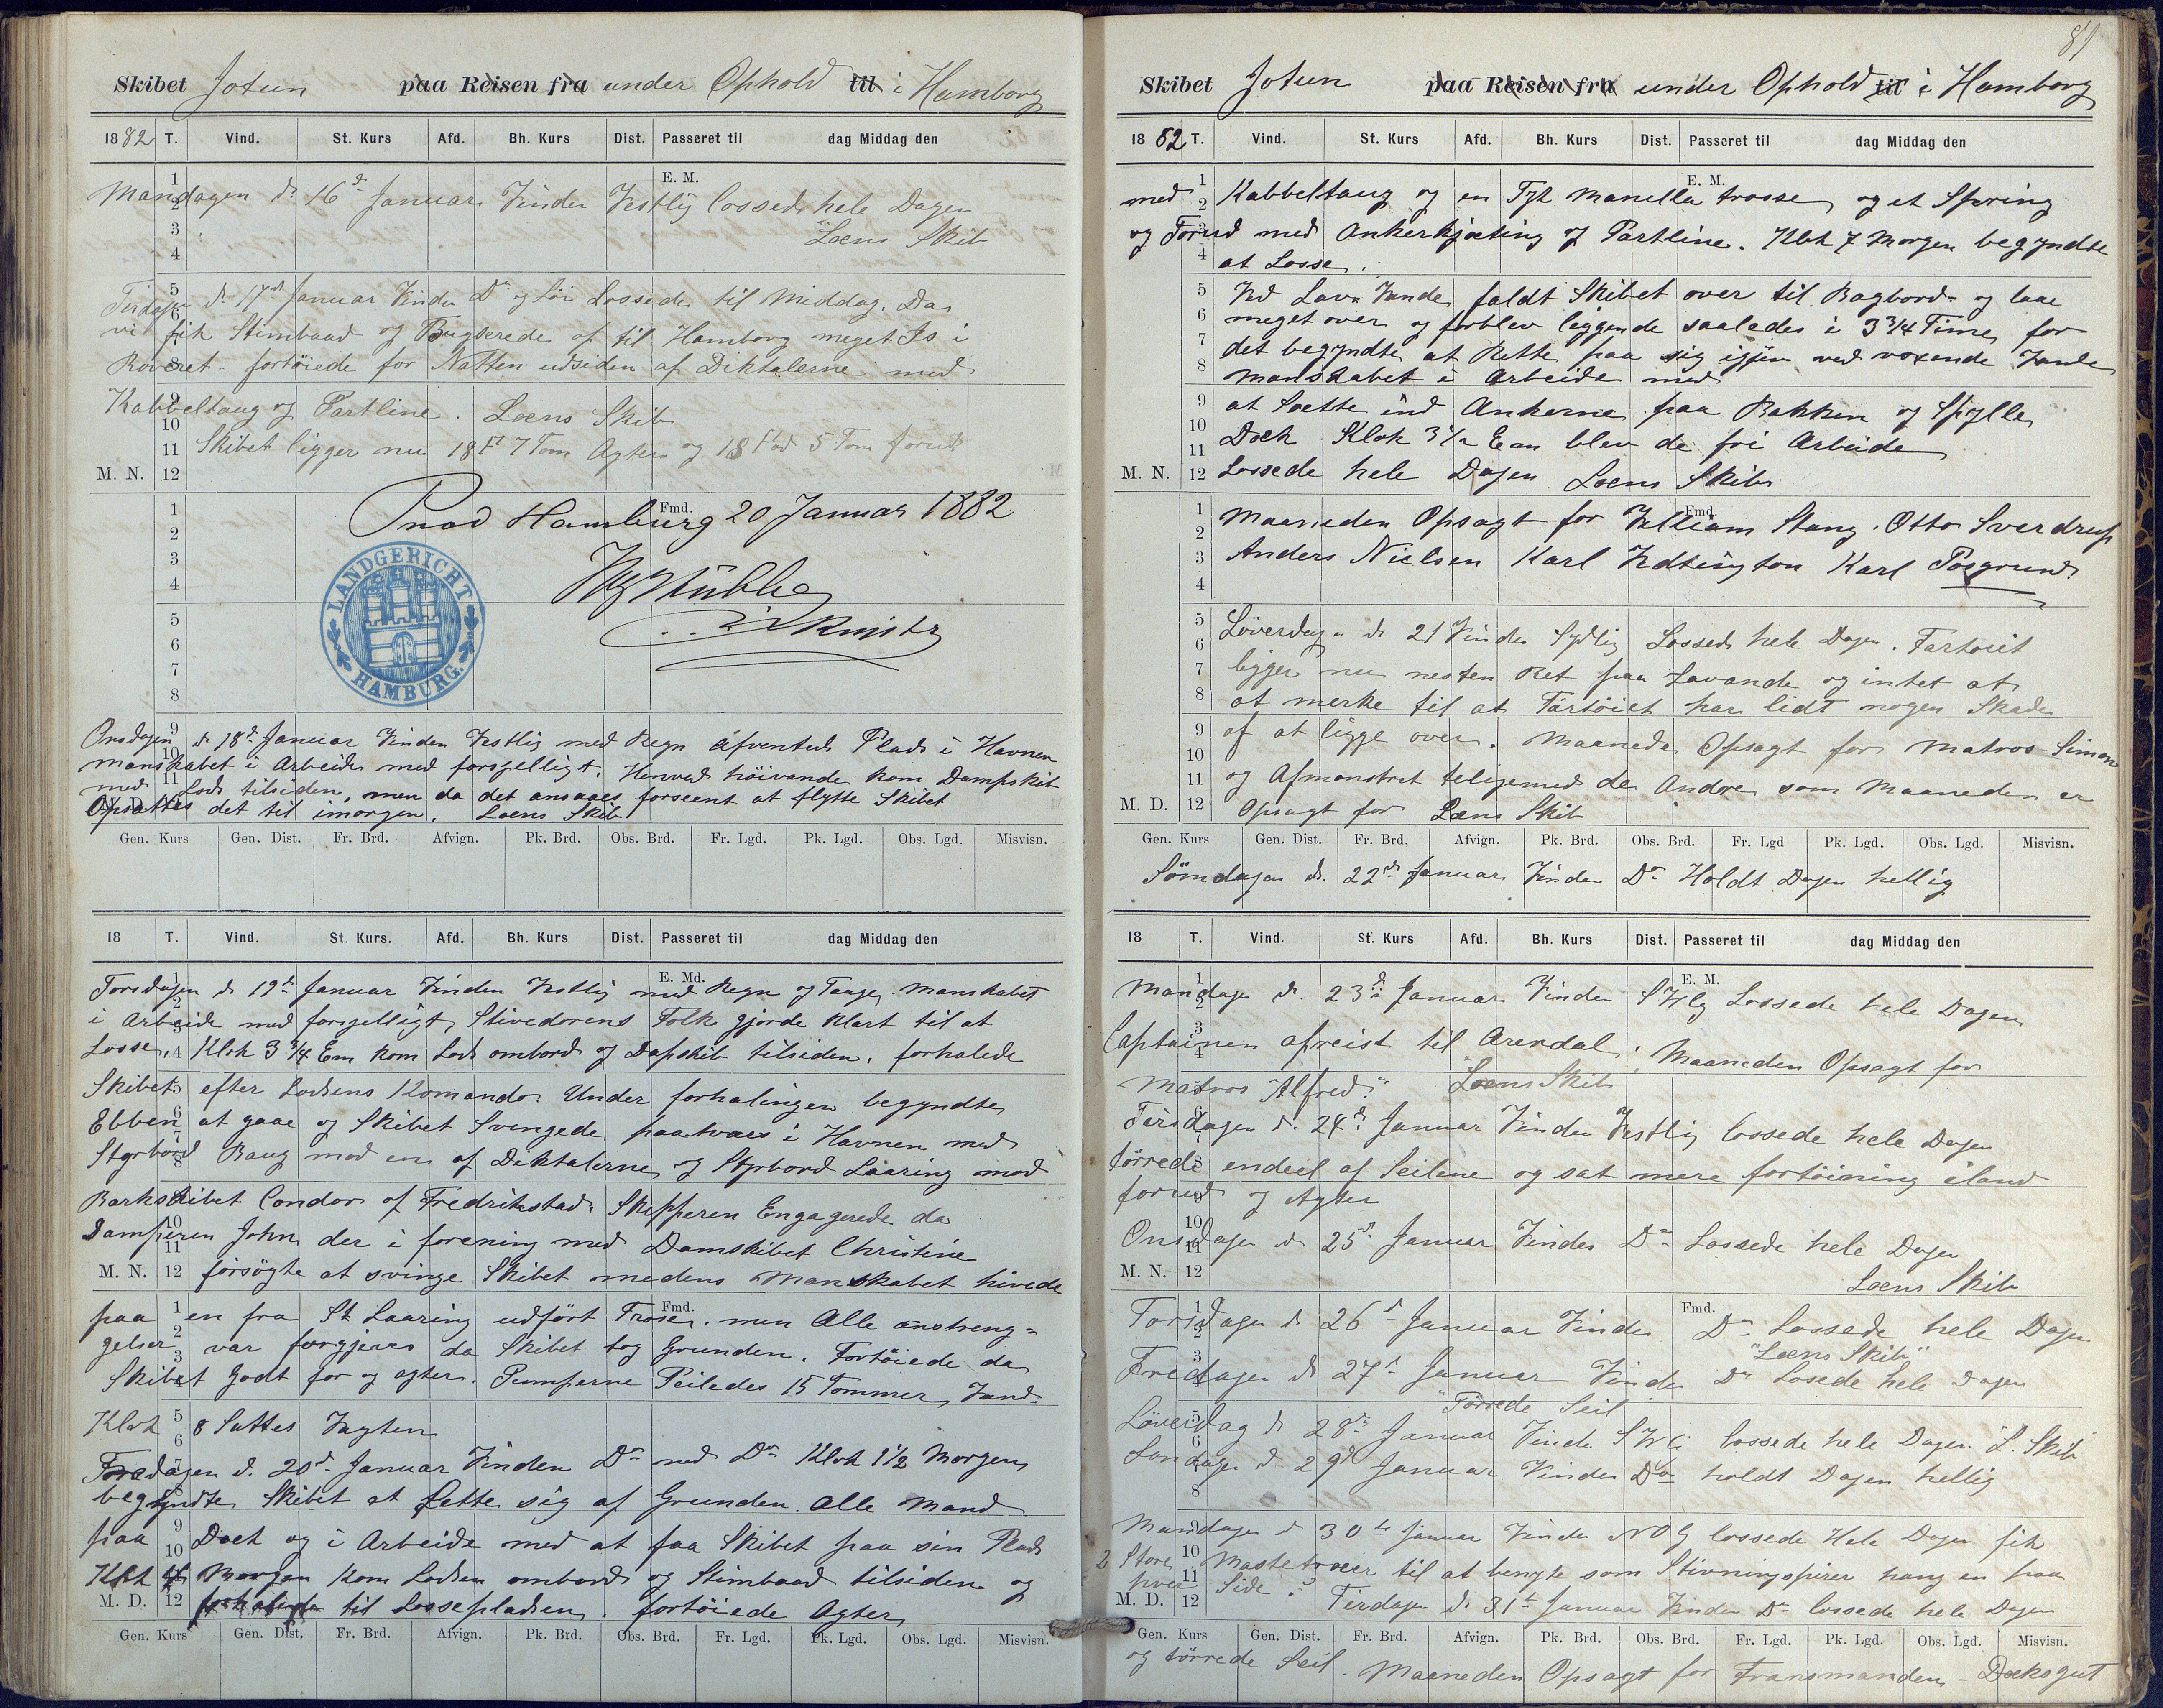 Skibet Jotun paa Reisen fra under Ophold til i Hamborg
1882 T. Vind. St. Kurs Afd. Bh. Kurs Dist. Passeret til dag Middag den
E. M.
Mandagen d 16d Januar Vinden Vestlig lossede hele Dagen
Læns Skib
Tirsdagen d. 17d Januar Vinden Do og Lossede til Middag. Da
vi fik Stimbaad og Bugserede op til Hamborg meget Is i
fortöiede for Natten udsiden af Diktalerne med
Kabbeltaug og Partline. Læns Skib
Skibet ligger nu 18 Ft 7 Tom Agter og 18 Fod 5 Tom forud
M. N. 12
Fmd.
Prod Hamburg 20 Januar 1882
LANDGERICHT HAMBURG.
Onsdagen d 18d Januar Vinden Vestlig med Regn afventede Plads i Havnen
Manskabet i Arbeide med forsjelligt. Henved höivande kom Dampskib
med Lods tilsiden, men da det ansages forseent at flytte Skibet
Opsattes det til imorgen. Læns Skib
M. D. 12
Gen. Kurs Gen. Dist. Fr. Brd. Afvign. Pk. Brd. Obs. Brd. Fr. Lgd. Pk. Lgd. Obs. Lgd. Misvisn.
18 T. Vind. St. Kurs. Afd. Bh. Kurs Dist. Passeret til dag Middag den
E. Md.
Torsdagen d 19d Januar Vinden Vestlig med Regn og Taage. Manskabet
i Arbeide med forsjelligt, Stivedorens Folk gjorde klart til at
Losse. Klok 3 3/4 Em kom Lods ombord og Dapskib tilsiden. forhalede
Skibet efter Lodsens Komando Under forhalingen begyndte
Ebben at gaae og Skibet Svingede paatværs i Havnen med
Styrbord Baug mod en af Diktalerne og Styrbord Laaring mod
Barkskibet Condor af Fredrikstad. Skipperen Engagerede da
Damperen John der i forening med Damskibet Christine
M. N. 12 forsögte at svinge Skibet medens Manskabet hivede
Fmd.
paa en fra St Laaring udfört Trosse. men Alle anstreng=
gelser var forgjeves da Skibet tog Grunden. Fortöiede da
Skibet Godt for og agter. Pumperne Peiledes 15 Tommer Vand.
Klok 8 Sattes Vagten
Fredagen d. 20d Januar Vinden Do med Do Klok 1 1/2 Morgen
begyndte Skibet at Lette sig af Grunden. Alle Mand
paa Dæck og i Arbeide med at faa Skibet paa sin Plads
Klok 4 Morgen kom Lodsen ombord og Stimbaad tilsiden og
M. D. 12 forhalede til Lossepladsen. fortöiede Agter
Gen. Kurs Gen. Dist. Fr. Brd. Afvign. Pk. Brd. Obs. Brd. Fr. Lgd. Pk. Lgd. Obs. Lgd. Misvisn.
81
Skibet Jotun paa Reisen fra under Ophold til i Hamborg
1882 T. Vind. St. Kurs Afd. Bh. Kurs Dist. Passeret til dag Middag den
E. M.
med Kabbeltaug og en Tyk Manella trosse og et Spring
og Forud med Ankerkjæting og Partline. Klok 7 Morgen begyndte
at Losse.
Ved Lav Vande faldt Skibet over til Bagbord og laae
meget over og forblev liggende saaledes i 3 3/4 Time, for
det begyndte at Rette paa sig igjen ved voxende Vande
Manskabet i Arbeide med
at Sætte ind Ankerne paa Bakken og Spylle
Dæck Klok 3 1/2 Em blev de fri Arbeide
M. N. 12 Lossede hele Dagen. Læns Skib
Fmd.
Maaneden Opsagt for William Stang. Otto Sverdrup
Anders Nielsen Karl Karl Posgrund.
Löverdagen d 21 Vinden Sydlig Lossede hele Dagen. Fartoiet
ligger nu nesten Ret paa Lavande og intet at
at merke til at Fartöiet har lidt nogen Skade
af at ligge over. Maanede Opsagt for Matros Simon
og Afmonstret teligemed de Andre som Maaneden er
M. D. 12 Opsagt for Læns Skib
Gen. Kurs Gen. Dist. Fr. Brd, Afvign. Pk. Brd. Obs. Brd. Fr. Lgd Pk. Lgd. Obs. Lgd. Misvisn.
Sömdagen d. 22d Januar Vinden Do Holdt Dagen hellig
18 T. Vind. St. Kurs Afd. Bh. Kurs Dist. Passeret til dag Middag den
E. M.
Mandagen d. 23d Januar Vinden SVlg Lossede hele Dagen
Captainen afreist til Arendal. Maaneden Opsagt for
Matros "Alfred" Læns Skib
Tirsdagen d. 24d Januar Vinden Vestlig lossede hele Dagen
törrede endeel af Seilene og sat mere fortöining iland
forud og Agter
Onsdagen d 25d Januar Vinden Do Lossede hele Dagen
M. N. 12
Læns Skib
Fmd.
Torsdagen d 26d Januar Vinden Do Lossede hele Dagen
"Læns Skib"
Fredagen d 27d Januar Vinden Do Losede hele Dagen
Törrede Seil
Löverdag d 28d Januar Vinden SVli lossede hele Dagen L. Skib
Sondagen d 29d Januar Vinden Do holdt Dagen hellig
Mandagen d 30te Januar Vinden NOlg lossede Hele Dagen fik
2 Store Mastetræer til at benyte som Stivningspirer hang en paa
hver Side.
M. D. 12 Tirdagen d 31te Januar Vinden Do lossede hele Dagen
Gen. Kurs Gen. Dist. Fr. Brd. Afvign. Pk. Brd. Obs. Brd. Fr. Lgd. Pk. Lgd. Obs. Lgd. Misvisn.
og törrede Seil. Maaneden Opsagt for Fransmanden - Dæksgut